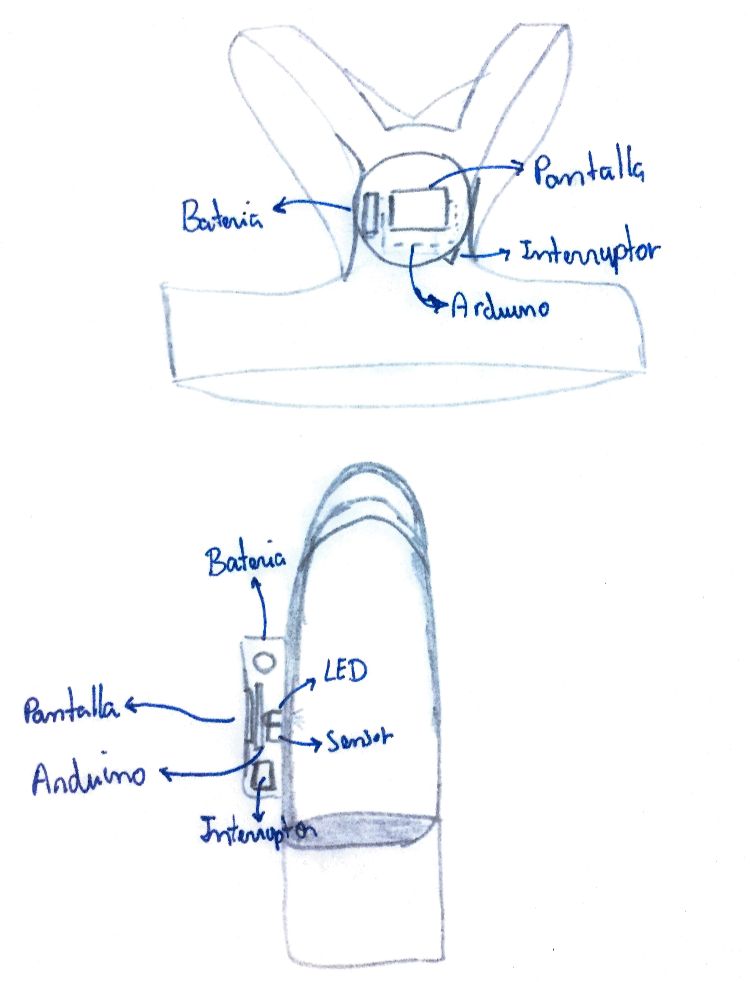 Pantalla
Bateria
Interruptor
Arduino
Bateria
LED
Pantalla
Sensor
Arduino
Interruptor